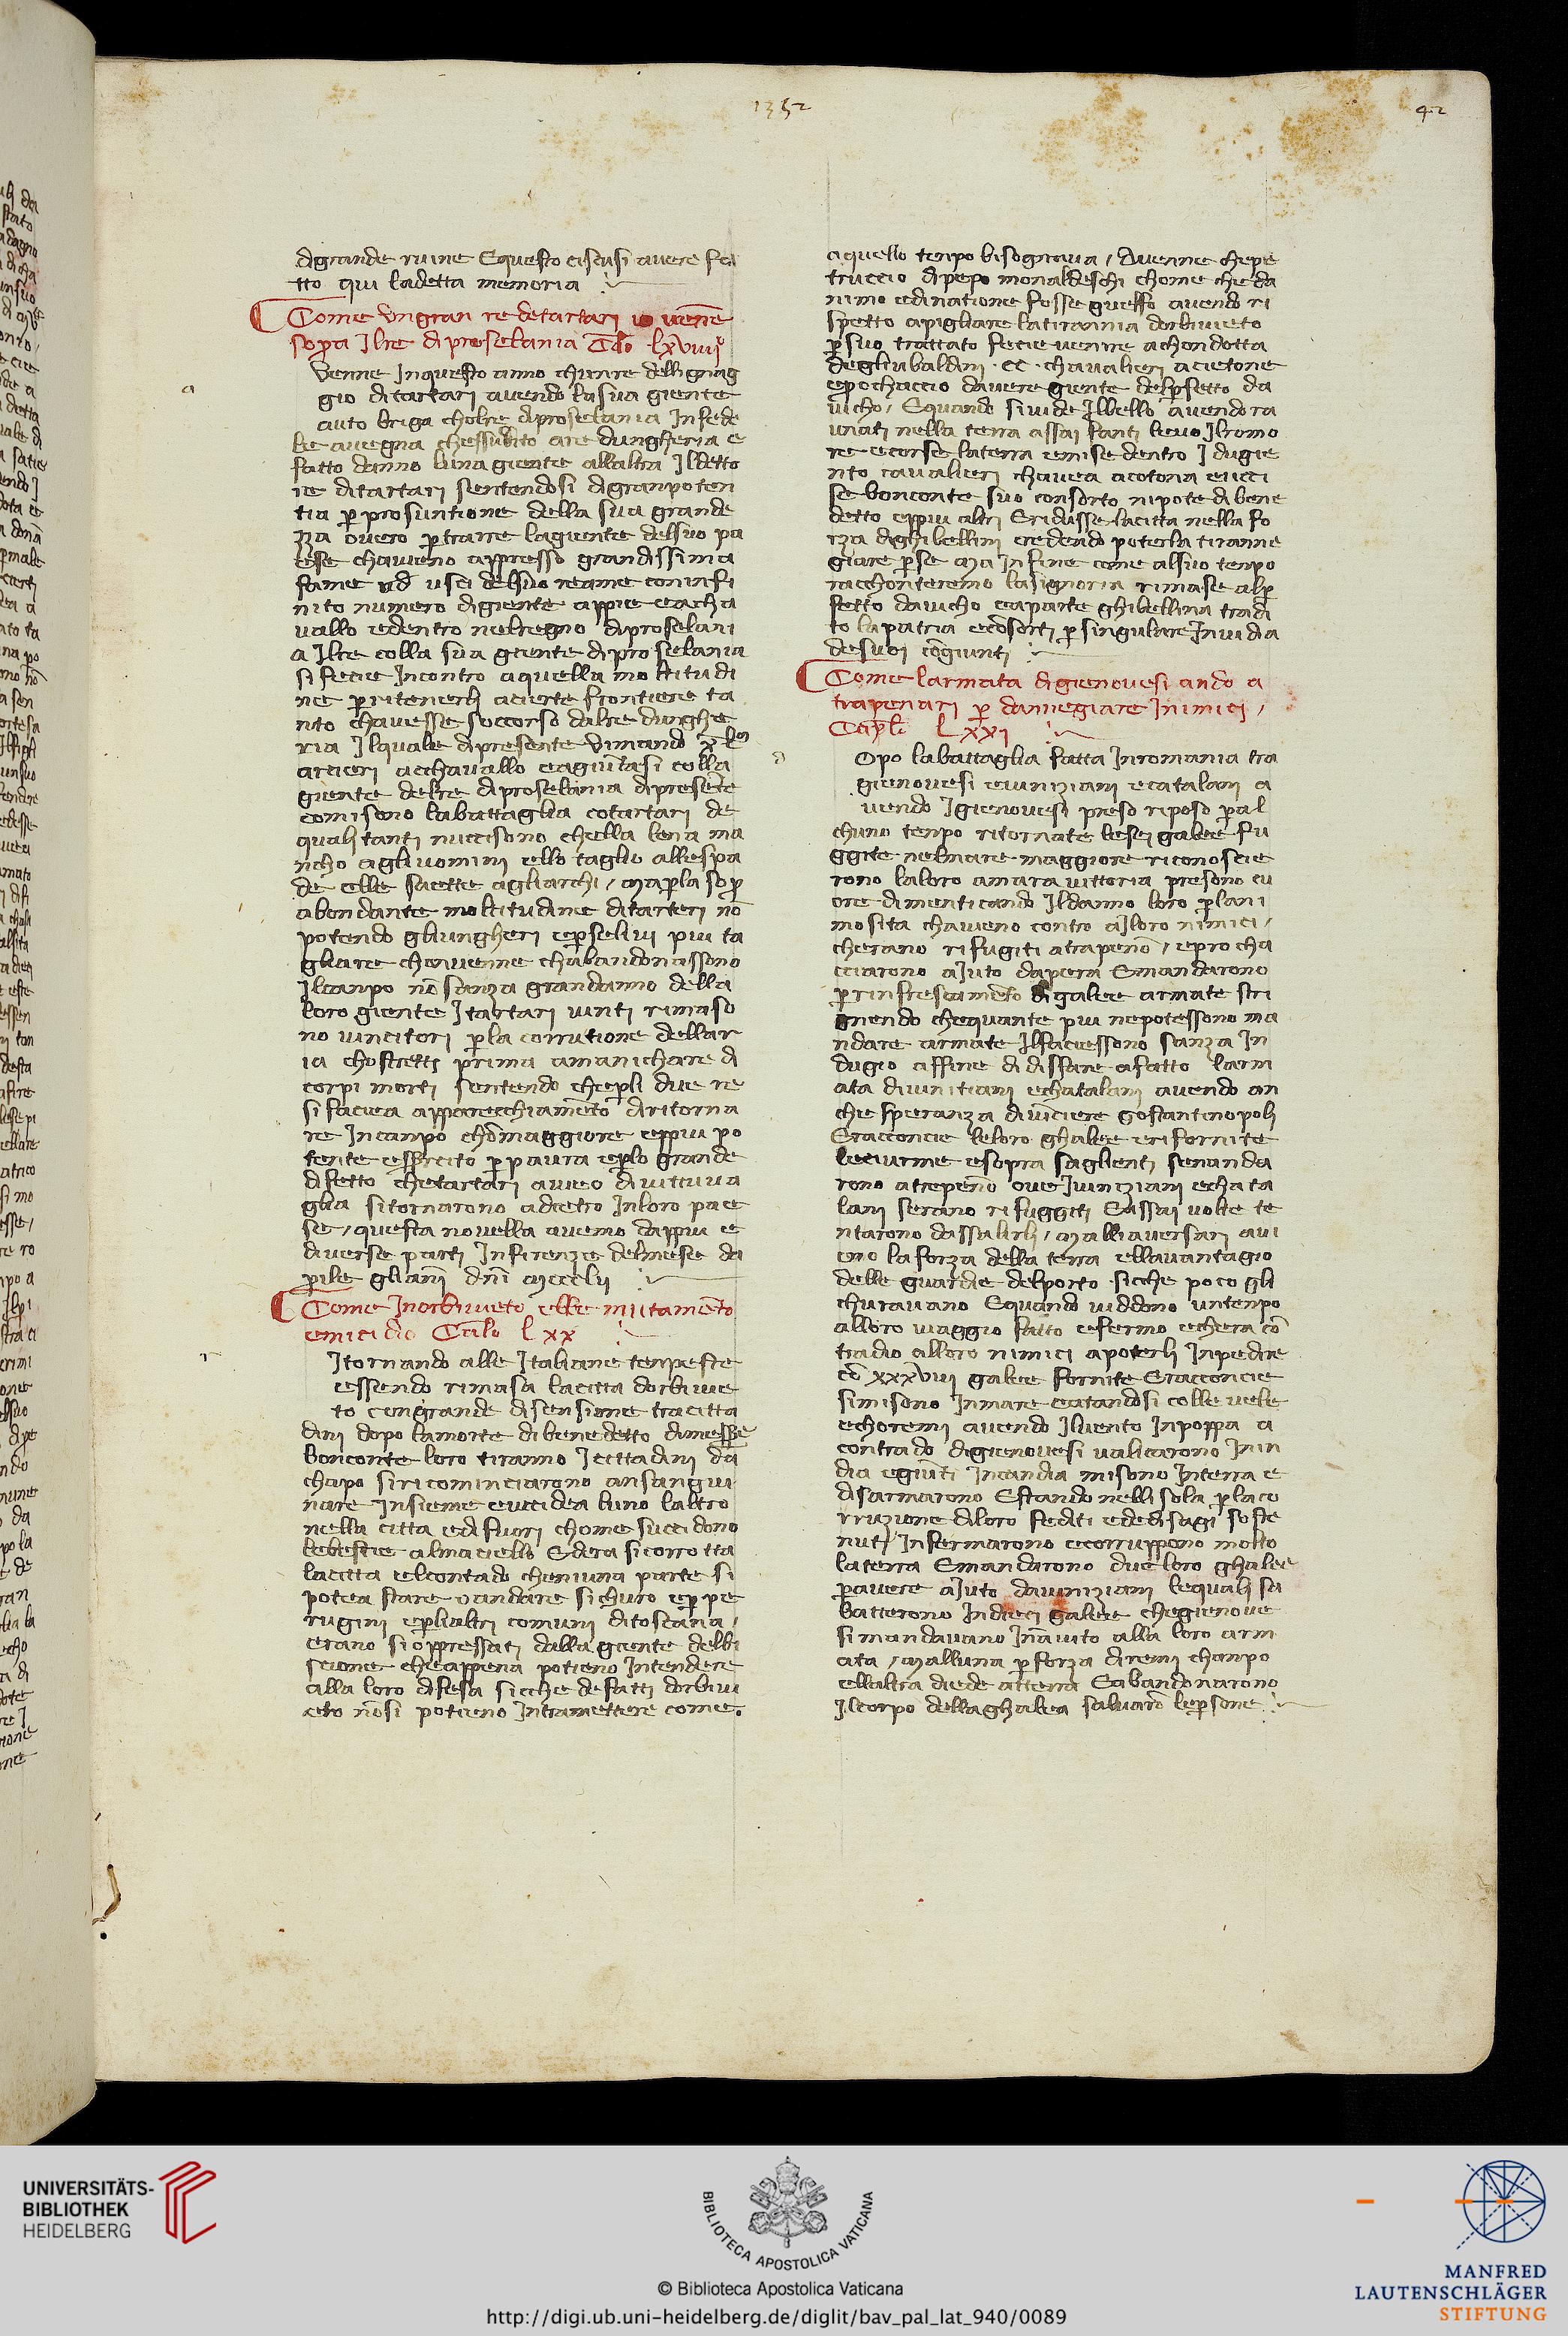 1352
42
digrande ruine Equesto ciscusi avere fa
tto qui ladetta memoria
Come Vngran re detartari venne
sopra Ilre diproselania Calo lxviiij
Venne Inquesto anno chunre dellignag
gio ditartari avendo lasua giente
auto briga cholre diproselania Infede
le avegna chessubito are dungheria e
fatto danno luna giente allaltra Ildetto
re ditartari sentendosi digranpoten
tia p prosuntione della sua grande
zza overo ptrarre lagiente delsuo pa
ese chaveno appresso grandissima
fame usci delsuo reame coninfi
nito numero digiente appie eacha
vallo edentro nelregno diproselani
a Ilre colla sua giente diproselania
sifecie Incontro aquella moltitudi
ne pritenerli acierte frontiere ta
nto chavesse soccorso dalre dunghe
ria Ilquale dipresente Vimando xlm
arcieri acchavallo eagiuntasi colla
giente delre diproselania dipresente
comisono labattaglia cotartari de
quali tanti nuccisono chella lena ma
ncho agliuomini ello taglio allespa
de elle saette agliarchi / Ma pla sop
abondante moltitudine ditarteri no
potendo gliungheri epselivi piu ta
gliare chonvenne chabandonassono
Ilcanpo no sanza grandanno della
loro giente Itartari vinti rimaso
no vincitori pla corrutione dellar
ia chostretti prima amanichare di
corpi morti sentendo chepli due re
sifaciea apparecchiamento diritorna
re Incanpo chomaggiore eppiu po
tente essercito p paura eplo grande
difetto chetartari aveo divittuva
glia sitornarono adietro Inloro pae
se / questa novella avemo dappiu e
diverse parti Infirenze delmese da
prile glianni dni Mccclij
Come Inorbivieto ebbe mutamento
emicidio Calo lxx
Itornando alle Italiane tenpeste
essendo rimasa lacitta dorbivie
to congrande disensione tracitta
dini dopo lamorte dibenedetto dimesse
bonconte loro tiranno Icittadini da
chapo siricominciarono ansangui
nare Insieme euccidea luno laltro
nella citta edifuori chome succidono
lebestie almaciello Edera sicorrotta
lacitta elcontado cheniuna parte si
potea stare o andare sichuro epe pe
rugini eplialtri comuni ditoscana /
erano sioppressati dalla giente delbi
scione cheappena potieno Intendere
alla loro difesa sicche defatti dorbivi
eto nosi potieno Intramettere come
aquello tenpo bisognava / Avenne chepe
truccio dipepo monaldeschi chome cheda
nimo edinatione fosse guelfo avendo ri
spetto apigliare latirannia dorbivieto
psuo trattato fecie venire achondotta
degliubaldini cc chavalieri acietone
epochaccio davere giente delpfetto da
vicho / Equando sivide Ilbello avendo ra
unati nella terra assai fanti levo Ilromo
re ecorse laterra emise dentro I dugie
nto cavalieri chavea acotona eucci
se bonconte suo consorto nipote dibene
detto eppiu altri Eridusse lacitta nella fo
rza dighibellini credendo poterla tiranne
giare pse Ma Infine come alsuo tenpo
racchonteremo lasignoria rimase alp
fetto davicho eaparte ghibellina tradi
to lapatria econsorti psingulare Invidia
desuoi congiunti
Come larmata digienovesi ando a
trapenari p dannegiare Inimici /
Capli lxxi
Opo labattaglia fatta Inromania tra
gienovesi eviniziani ecatalani a
vendo Igienovesi preso riposo pal
chuno tenpo ritornate lesei galee fu
ggite nelmare maggiore riconoscie
rono laloro amara vittoria presono cu
ore dimenticando Ildanno loro plani
mosita chaveno contro ailoro nimici /
cherano rifugiti atrapeno / eprocha
cciarono aiuto dapera Emandarono
prinfrescamento digalee armate stri
gnendo chequante piu nepotessono ma
ndare armate Ilfaciessono sanza In
dugio affine di disfare afatto larm
ata divinitiani echatalani avendo an
che speranza divinciere Gostantinopoli
Eracconcie leloro ghalee erifornite
leciurme esopra saglienti senanda
rono atrepeno ove Iviniziani echata
lani serano rifuggiti Eassai volte te
ntarono dassalirli / Malliaversari avi
eno laforza della terra ellavantagio
delle guardie delporto sicche poco gli
churavano Equando viddono untenpo
alloro viaggio fatto efermo echera con
tradio alloro nimici apoterli Inpedire
co xxxviij galee fornite Eracconcie
simisono Inmare eatandosi colle vele
echoremi avendo Ilvento Inpoppa a
contrado digienovesi valicarono Inin
dia egiunti Incandia misono Interra e
disarmarono Estando nellisola placo
rruzione diloro fediti ededisagi soste
nuti Infermarono ecorruppono molto
laterra Emandarono due loro ghalee
pavere aiuto daviniziani lequali sa
batterono Indieci galee chegienove
simandavano Inaiuto alla loro arm
ata / Malluna pforza diremi chanpo
ellaltra diede atterra Eabandonarono
Ilcorpo dellaghalea salvaro lepsone
UNIVERSITÄTS-
BIBLIOTHEK
HEIDELBERG
BIBLIOTECA APOSTOLICA VATICANA
© Biblioteca Apostolica Vaticana
http://digi.ub.uni-heidelberg.de/diglit/bav_pal_lat_940/0089
MANFRED
LAUTENSCHLÄGER
STIFTUNG